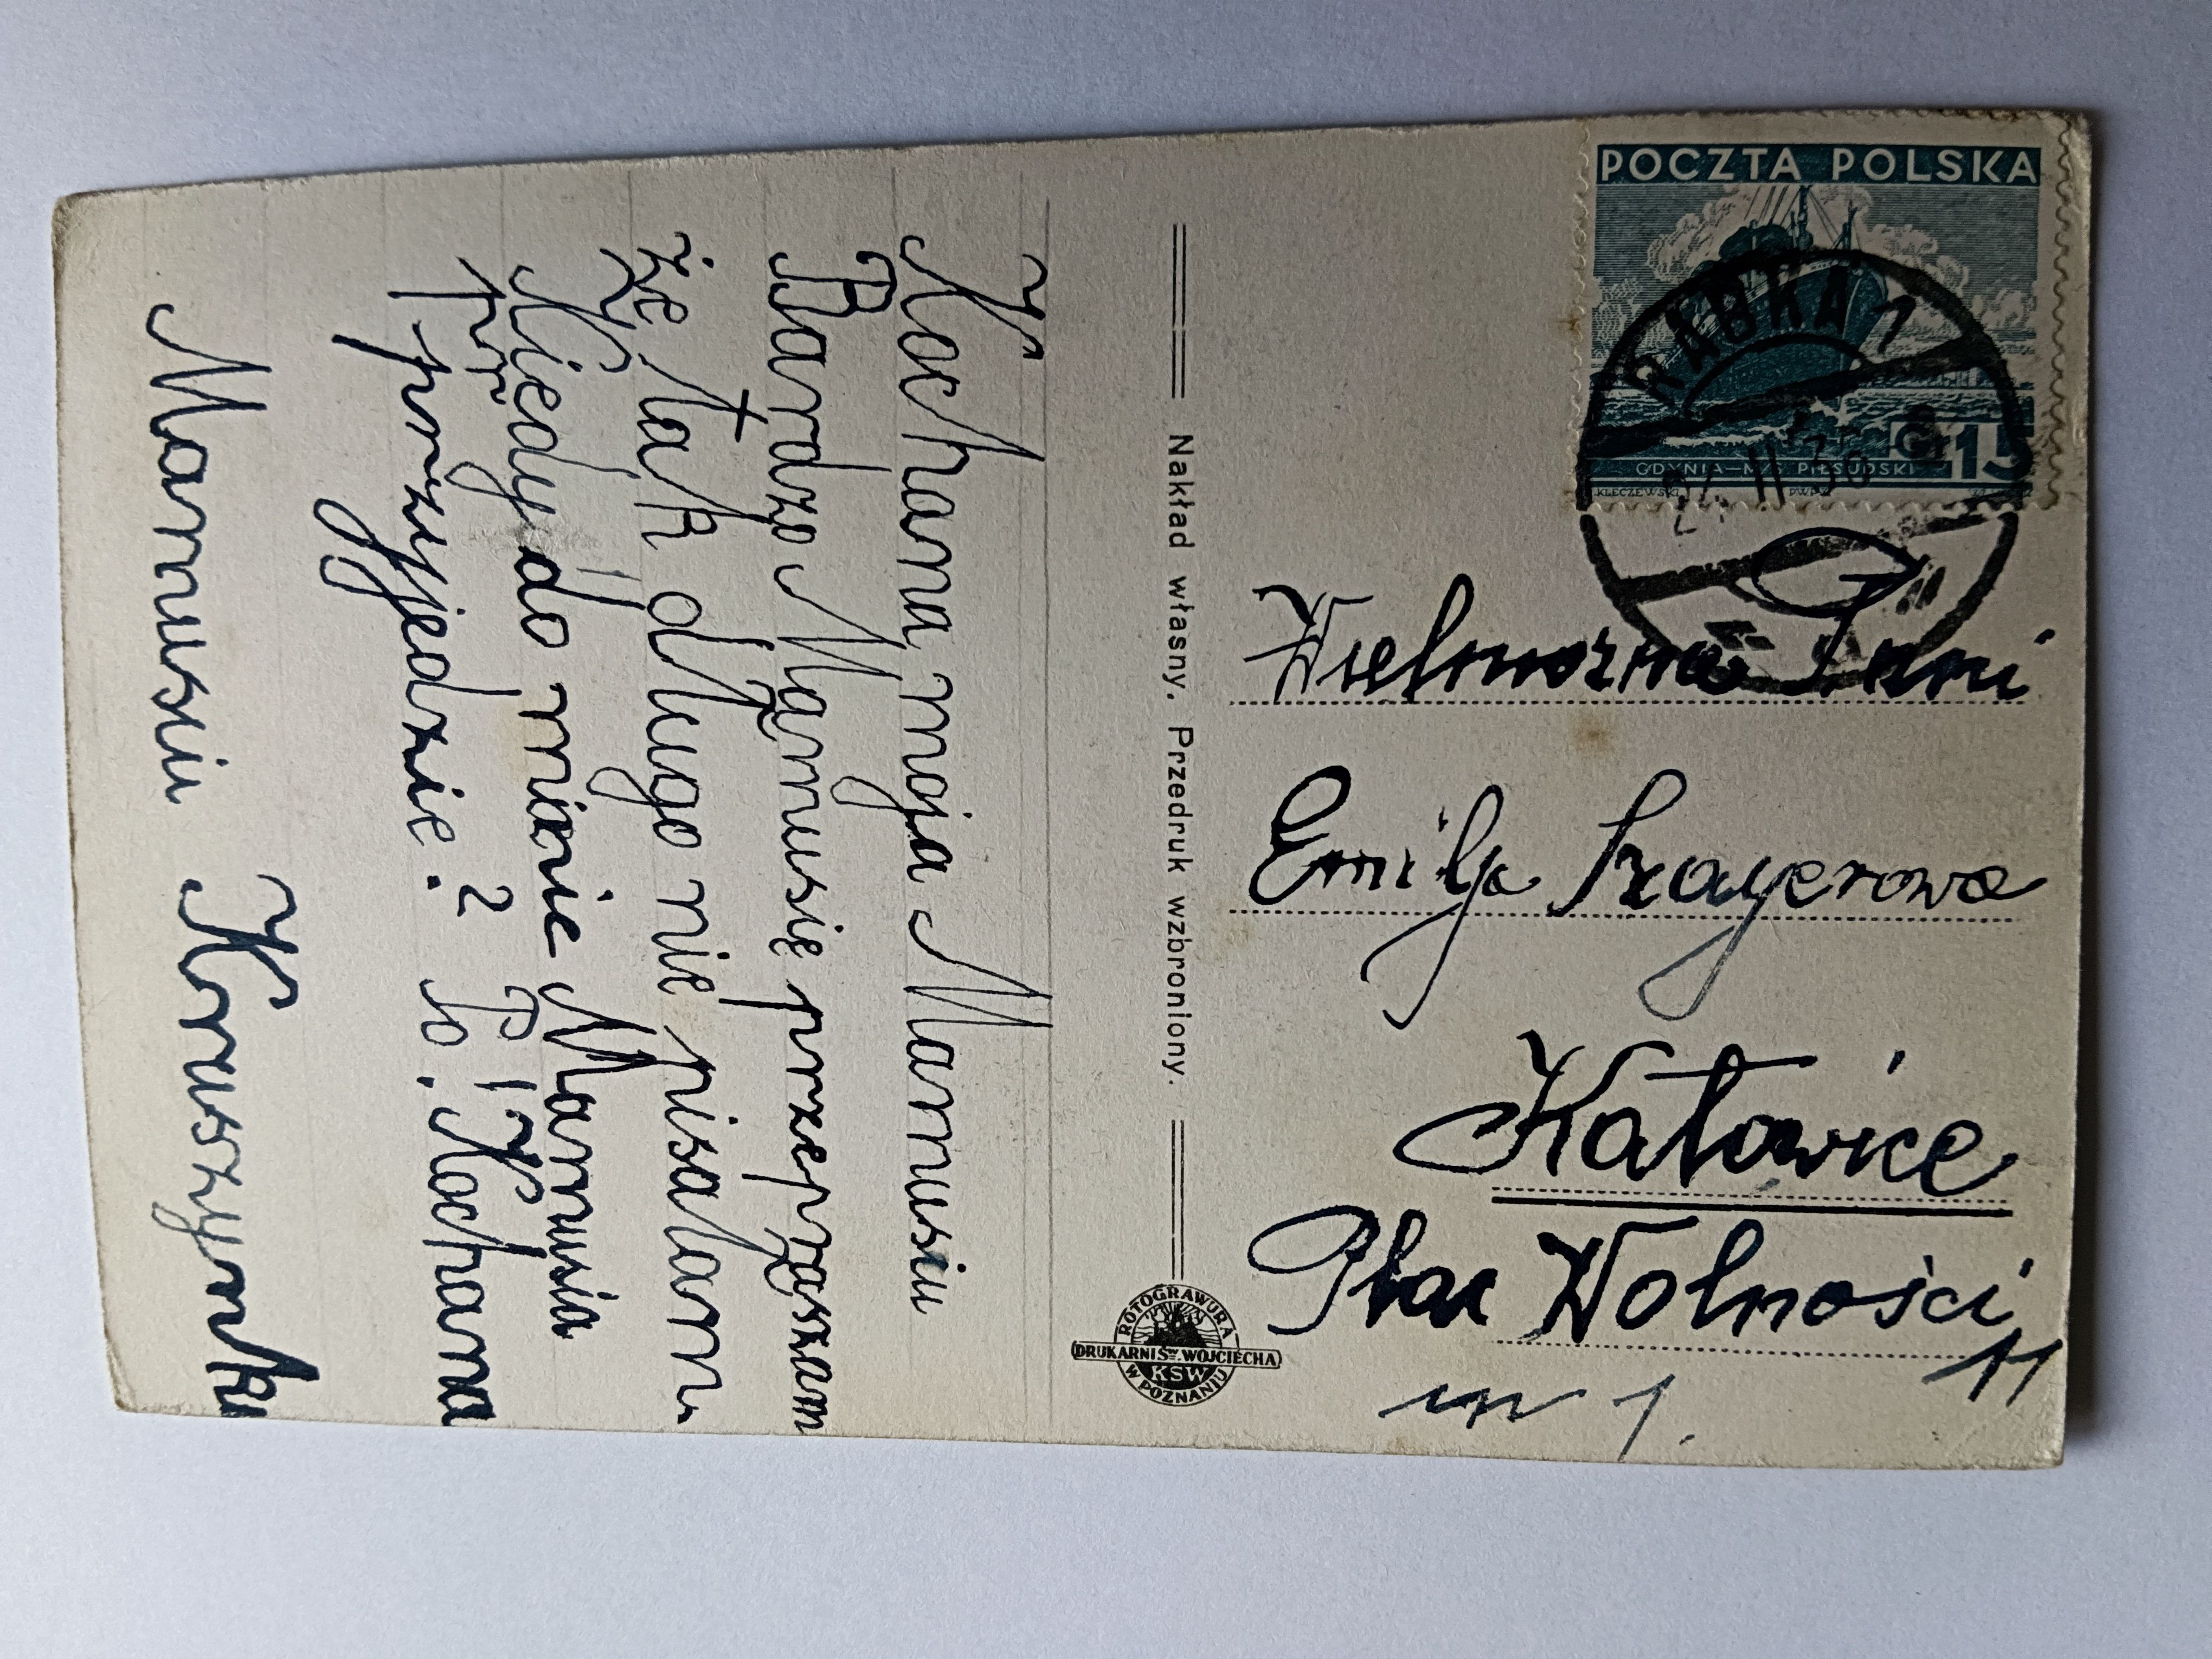 Kochana moja Mamusiu
Bardzo Mamusię przepraszam
że tak długo nie pisałam.
Kiedy do mnie Mamusia
przyjedzie? Po. Kochana
Mamusiu Kruszynka
Nakład własny. Przedruk wzbroniony.
ROTOGRAWURA
DRUKARNI Św. WOJCIECHA
KSW
W POZNANIU
POCZTA POLSKA
GDYNIA—M/S PIŁSUDSKI
Gr 15
KLECZEWSKI
PWPW
RABKA 1
II 36
Wielmożna Pani
Emilja Szayerowa
Katowice
Plac Wolności
11
m 1.